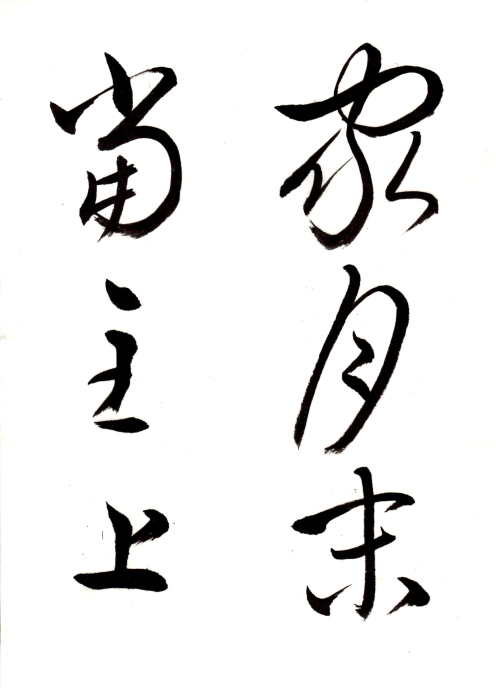 家月末
當主上